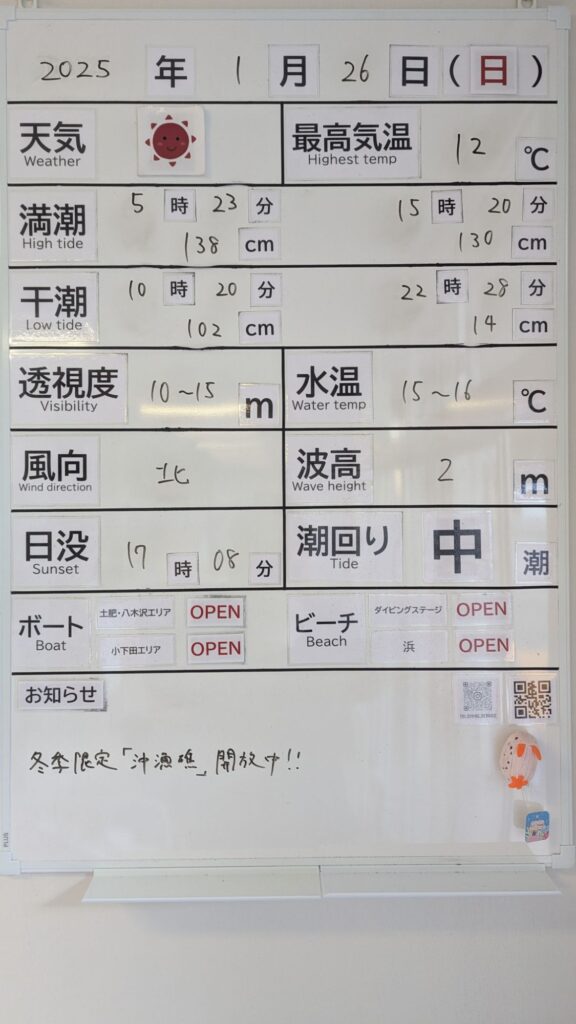 2025 年 1 月 26 日 ( 日 )
天気 Weather
最高気温 Highest temp 12 ℃
満潮 High tide 5 時 23 分 138 cm
15 時 20 分 130 cm
干潮 Low tide 10 時 20 分 102 cm
22 時 28 分 14 cm
透視度 Visibility 10～15 m
水温 Water temp 15～16 ℃
風向 Wind direction 北
波高 Wave height 2 m
日没 Sunset 17 時 08 分
潮回り Tide 中 潮
ボート Boat
土肥・八木沢エリア OPEN
小下田エリア OPEN
ビーチ Beach
ダイビングステージ OPEN
浜 OPEN
お知らせ
冬季限定「沖漁礁」開放中!!
PLUS